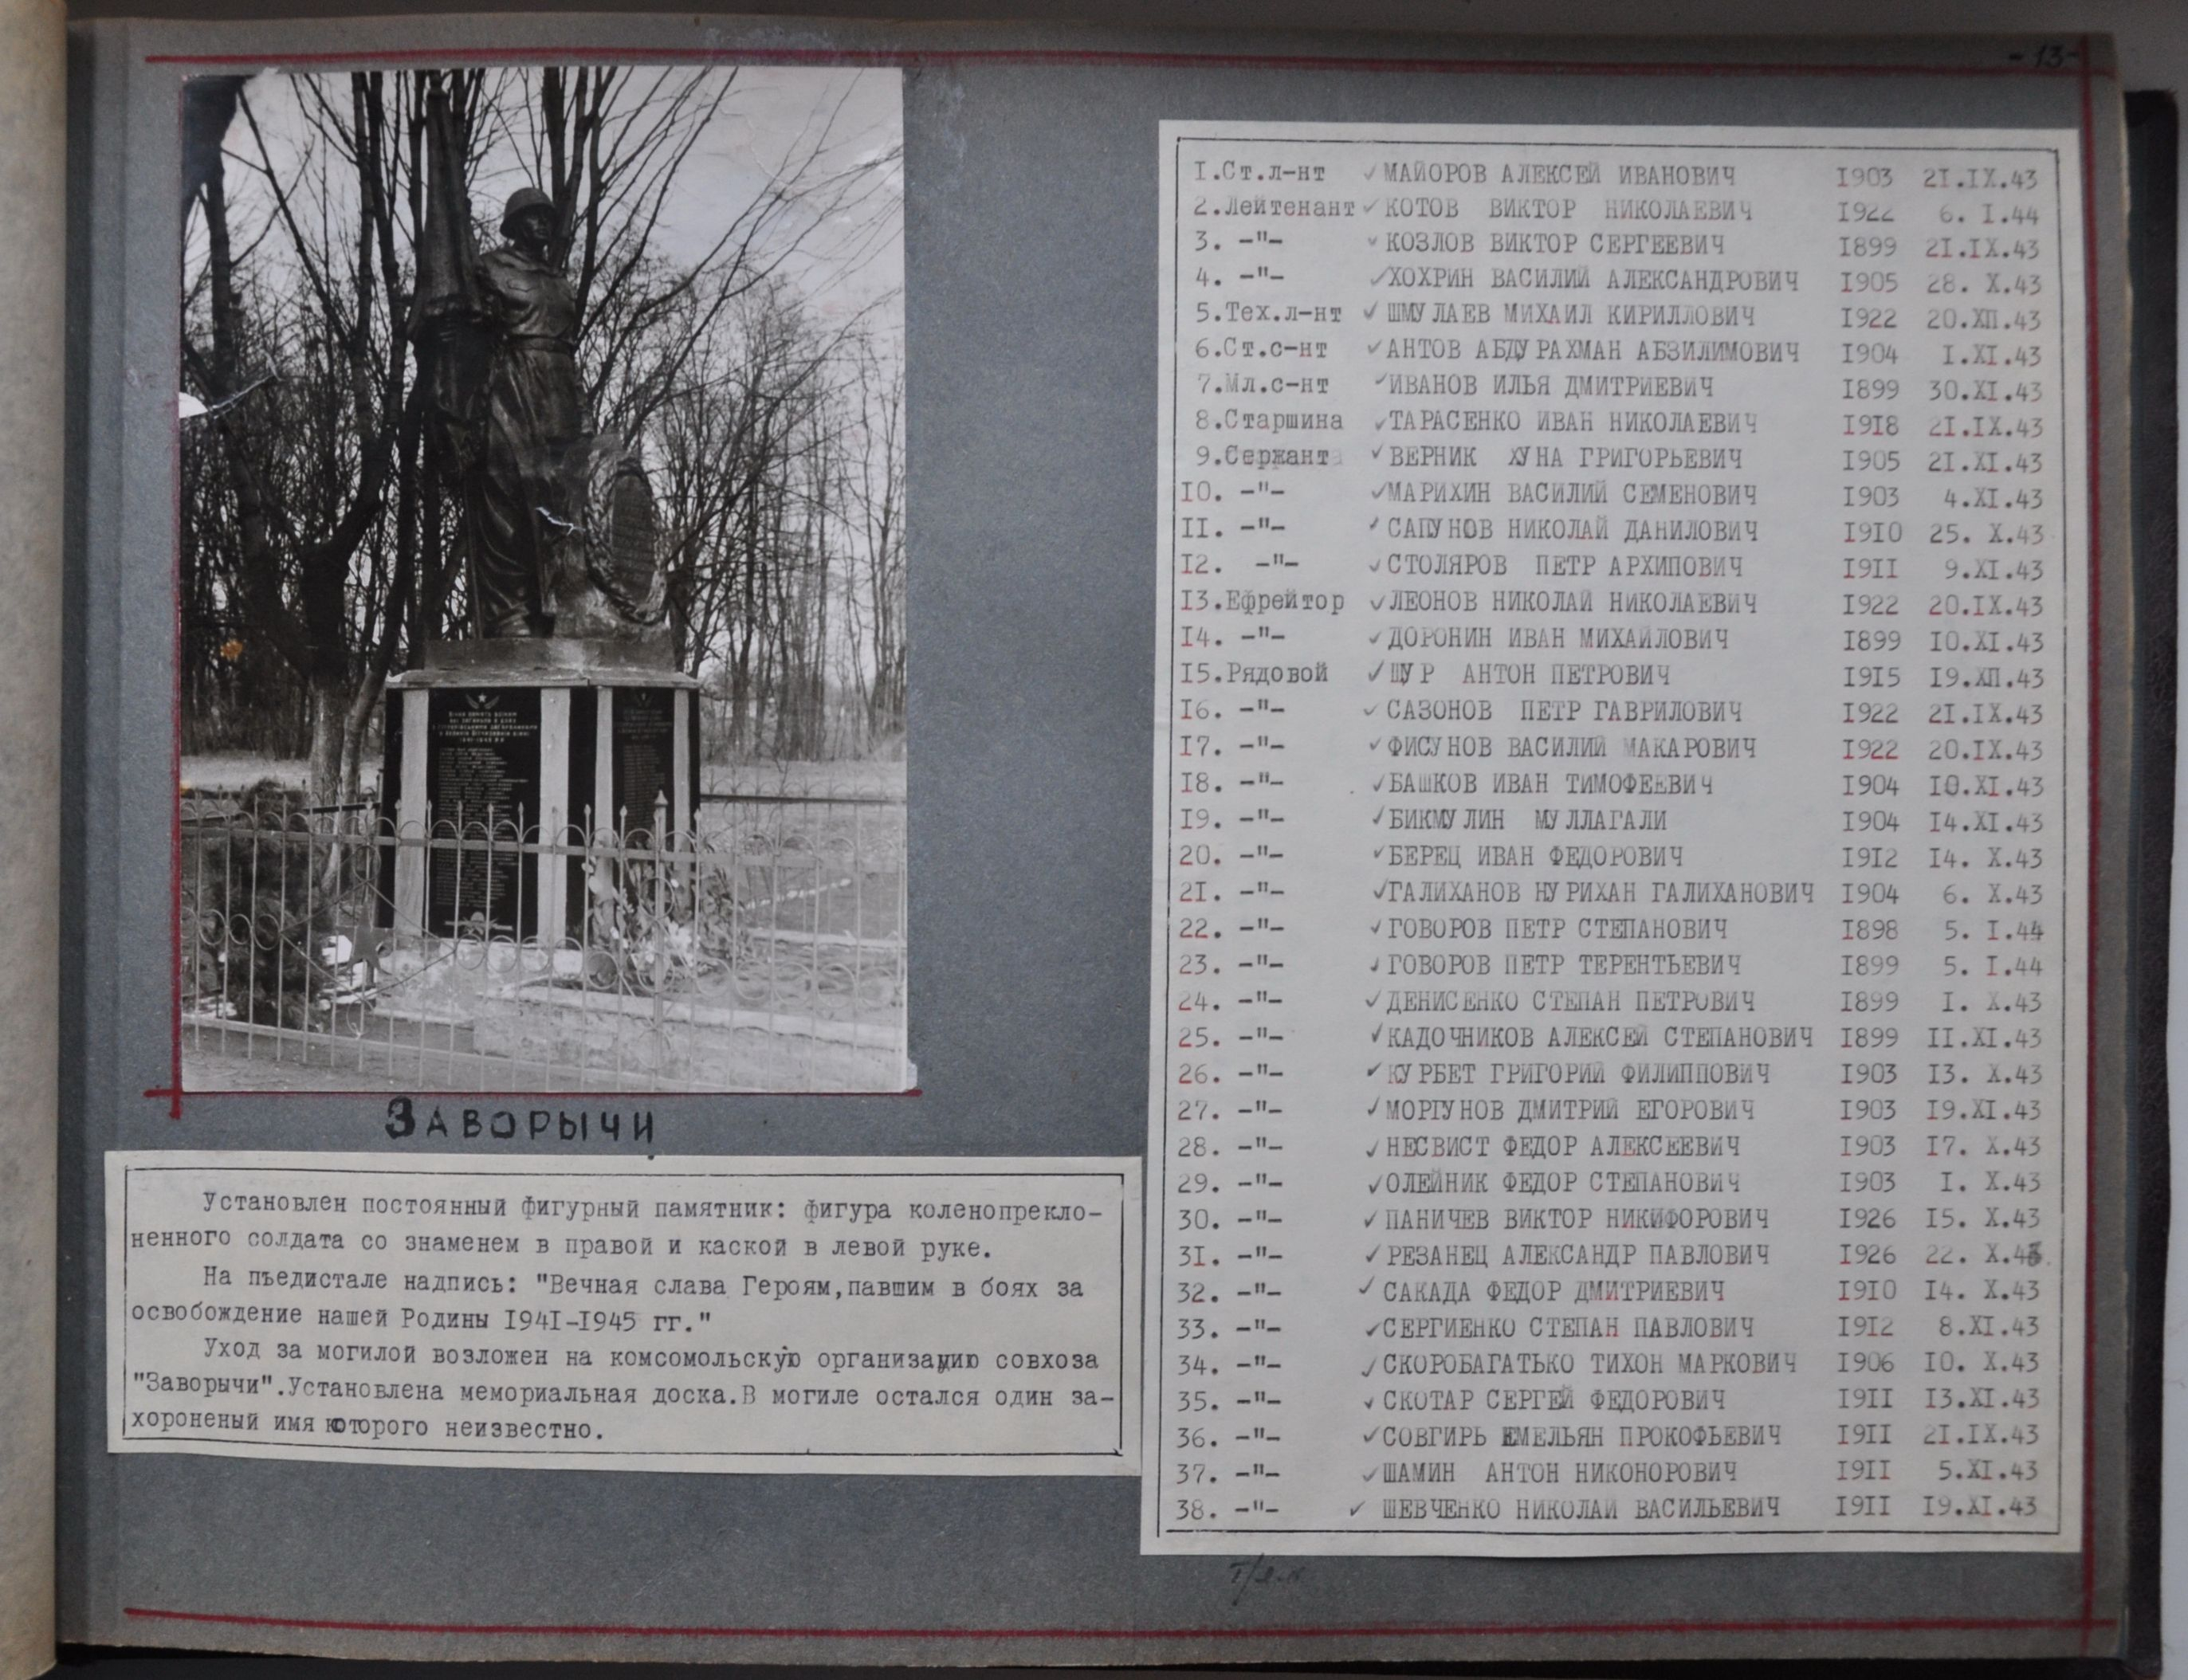 - 13 -
ЗАВОРЫЧИ
Установлен постоянный фигурный памятник: фигура коленопрекло-
ненного солдата со знаменем в правой и каской в левой руке.
На пъедистале надпись: "Вечная слава Героям,павшим в боях за
освобождение нашей Родины I94I-I945 гг."
Уход за могилой возложен на комсомольскую организацию совхоза
"Заворычи".Установлена мемориальная доска.В могиле остался один за-
хороненый имя которого неизвестно.
I.Ст.л-нт ✓ МАЙОРОВ АЛЕКСЕЙ ИВАНОВИЧ I903 2I.IX.43
2.Лейтенант ✓ КОТОВ ВИКТОР НИКОЛАЕВИЧ I922 6. I.44
3. -"- ✓ КОЗЛОВ ВИКТОР СЕРГЕЕВИЧ I899 2I.IX.43
4. -"- ✓ ХОХРИН ВАСИЛИЙ АЛЕКСАНДРОВИЧ I905 28. X.43
5.Тех.л-нт ✓ ШМУЛАЕВ МИХАИЛ КИРИЛЛОВИЧ I922 20.XП.43
6.Ст.с-нт ✓ АНТОВ АБДУРАХМАН АБЗИЛИМОВИЧ I904 I.XI.43
7.Мл.с-нт ✓ ИВАНОВ ИЛЬЯ ДМИТРИЕВИЧ I899 30.XI.43
8.Старшина ✓ ТАРАСЕНКО ИВАН НИКОЛАЕВИЧ I9I8 2I.IX.43
9.Сержант ✓ ВЕРНИК ХУНА ГРИГОРЬЕВИЧ I905 2I.XI.43
I0. -"- ✓ МАРИХИН ВАСИЛИЙ СЕМЕНОВИЧ I903 4.XI.43
II. -"- ✓ САПУНОВ НИКОЛАЙ ДАНИЛОВИЧ I9I0 25. X.43
I2. -"- ✓ СТОЛЯРОВ ПЕТР АРХИПОВИЧ I9II 9.XI.43
I3.Ефрейтор ✓ ЛЕОНОВ НИКОЛАЙ НИКОЛАЕВИЧ I922 20.IX.43
I4. -"- ✓ ДОРОНИН ИВАН МИХАЙЛОВИЧ I899 I0.XI.43
I5.Рядовой ✓ ЩУР АНТОН ПЕТРОВИЧ I9I5 I9.XП.43
I6. -"- ✓ САЗОНОВ ПЕТР ГАВРИЛОВИЧ I922 2I.IX.43
I7. -"- ✓ ФИСУНОВ ВАСИЛИЙ МАКАРОВИЧ I922 20.IX.43
I8. -"- ✓ БАШКОВ ИВАН ТИМОФЕЕВИЧ I904 I0.XI.43
I9. -"- ✓ БИКМУЛИН МУЛЛАГАЛИ I904 I4.XI.43
20. -"- ✓ БЕРЕЦ ИВАН ФЕДОРОВИЧ I9I2 I4. X.43
2I. -"- ✓ ГАЛИХАНОВ НУРИХАН ГАЛИХАНОВИЧ I904 6. X.43
22. -"- ✓ ГОВОРОВ ПЕТР СТЕПАНОВИЧ I898 5. I.44
23. -"- ✓ ГОВОРОВ ПЕТР ТЕРЕНТЬЕВИЧ I899 5. I.44
24. -"- ✓ ДЕНИСЕНКО СТЕПАН ПЕТРОВИЧ I899 I. X.43
25. -"- ✓ КАДОЧНИКОВ АЛЕКСЕЙ СТЕПАНОВИЧ I899 II.XI.43
26. -"- ✓ КУРБЕТ ГРИГОРИЙ ФИЛИППОВИЧ I903 I3. X.43
27. -"- ✓ МОРГУНОВ ДМИТРИЙ ЕГОРОВИЧ I903 I9.XI.43
28. -"- ✓ НЕСВИСТ ФЕДОР АЛЕКСЕЕВИЧ I903 I7. X.43
29. -"- ✓ ОЛЕЙНИК ФЕДОР СТЕПАНОВИЧ I903 I. X.43
30. -"- ✓ ПАНИЧЕВ ВИКТОР НИКИФОРОВИЧ I926 I5. X.43
3I. -"- ✓ РЕЗАНЕЦ АЛЕКСАНДР ПАВЛОВИЧ I926 22. X.43.
32. -"- ✓ САКАДА ФЕДОР ДМИТРИЕВИЧ I9I0 I4. X.43
33. -"- ✓ СЕРГИЕНКО СТЕПАН ПАВЛОВИЧ I9I2 8.XI.43
34. -"- ✓ СКОРОБАГАТЬКО ТИХОН МАРКОВИЧ I906 I0. X.43
35. -"- ✓ СКОТАР СЕРГЕЙ ФЕДОРОВИЧ I9II I3.XI.43
36. -"- ✓ СОВГИРЬ ЕМЕЛЬЯН ПРОКОФЬЕВИЧ I9II 2I.IX.43
37. -"- ✓ ШАМИН АНТОН НИКОНОРОВИЧ I9II 5.XI.43
38. -"- ✓ ШЕВЧЕНКО НИКОЛАЙ ВАСИЛЬЕВИЧ I9II I9.XI.43